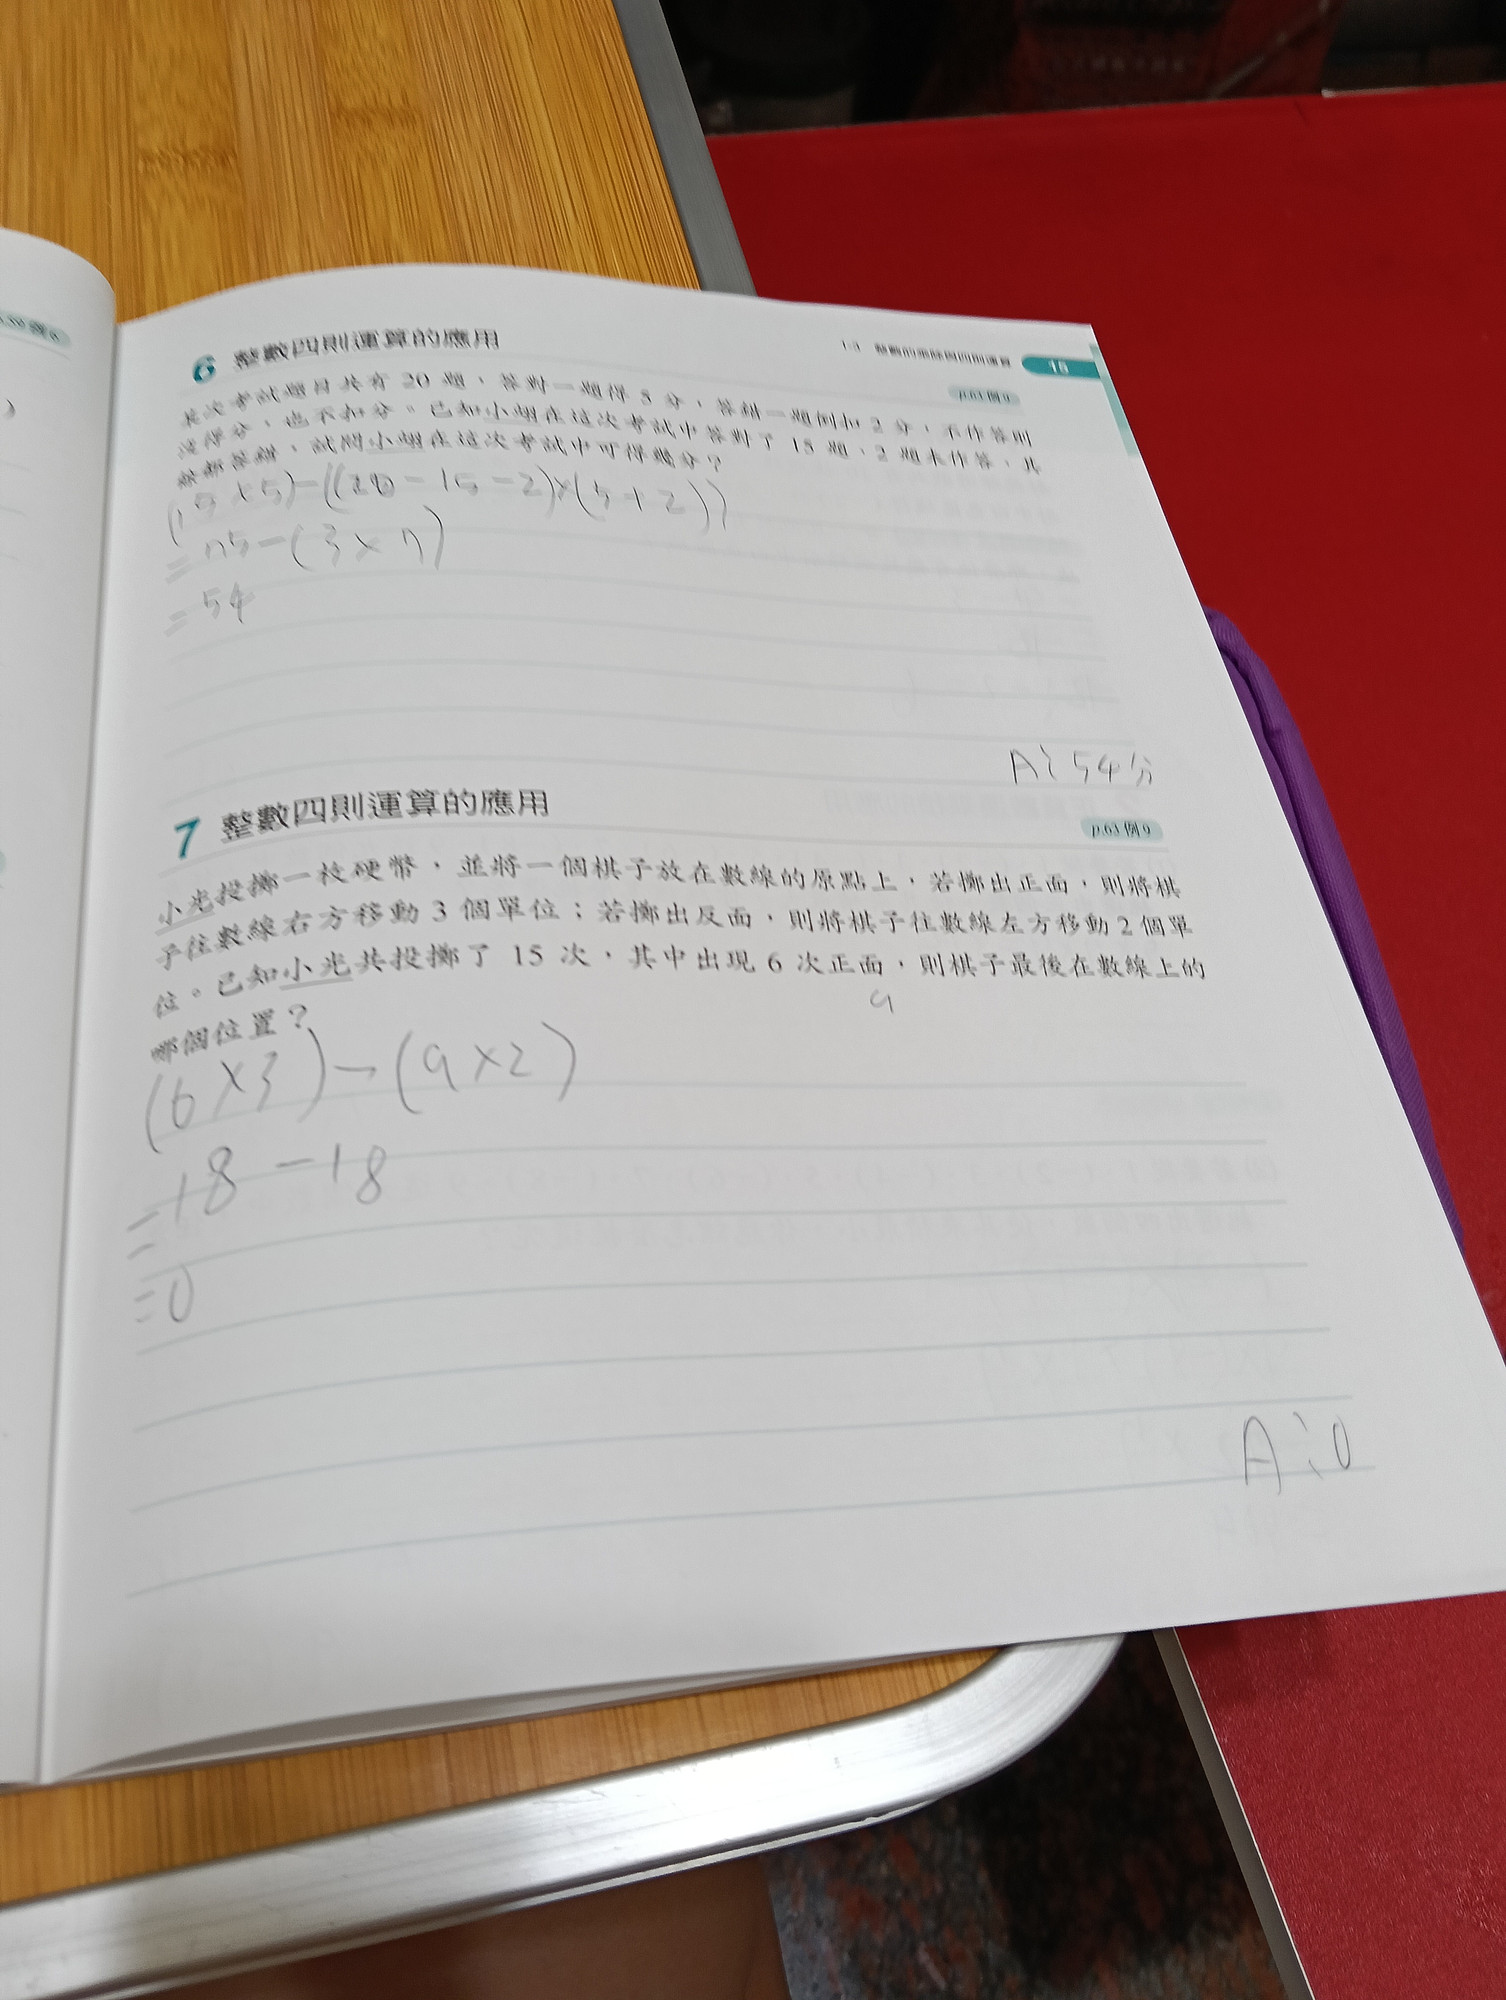 6 整數四則運算的應用
1-3 整數的乘除與四則運算 15
p.61 例9
某次考試題目共有 20 題，答對一題得 5 分，答錯一題倒扣 2 分，不作答則
沒得分，也不扣分。已知小翊在這次考試中答對了 15 題，2 題未作答，其
餘都答錯，試問小翊在這次考試中可得幾分？
(15×5)-((20-15-2)×(5+2))
=75-(3×7)
=54
A:54分
7 整數四則運算的應用
p.63 例9
小光投擲一枚硬幣，並將一個棋子放在數線的原點上，若擲出正面，則將棋
子往數線右方移動 3 個單位；若擲出反面，則將棋子往數線左方移動 2 個單
位。已知小光共投擲了 15 次，其中出現 6 次正面，則棋子最後在數線上的
9
哪個位置？
(6×3)-(9×2)
=18-18
=0
A:0